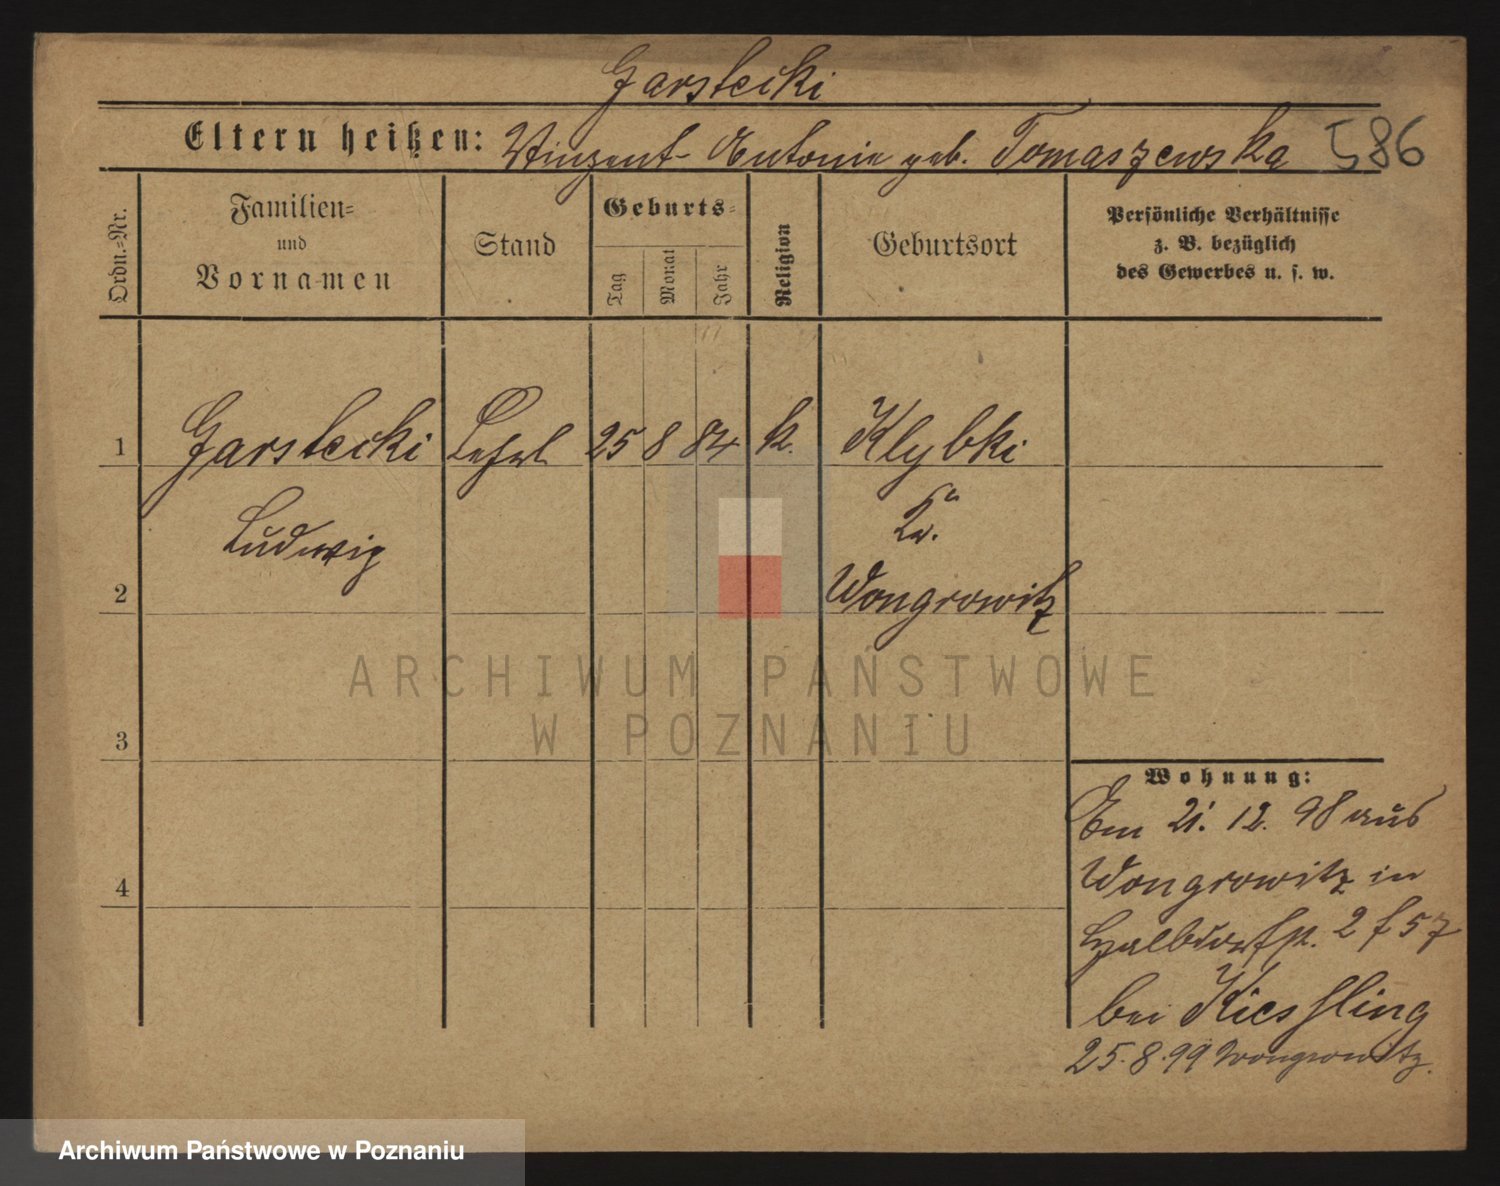 Garstecki
Eltern heißen: Vinzent Antonie geb. Tomaszewska 586
Ordn.=Nr.
Familien=
und
Vornamen
Stand
Geburts=
Tag
Monat
Jahr
Religion
Geburtsort
Persönliche Verhältnisse
z. B. bezüglich
des Gewerbes u. s. w.
1 Garstecki 25 8 84 k. Klybki
Ludwig
Kr.
2 Wongrowitz
ARCHIWUM PAŃSTWOWE
W POZNANIU
3
Wohnung:
21. 12. 98 aus
Wongrowitz in
4
Halbdorfstr. 2 57
bei Kiessling
25.8.99 Wongrowitz.
Archiwum Państwowe w Poznaniu